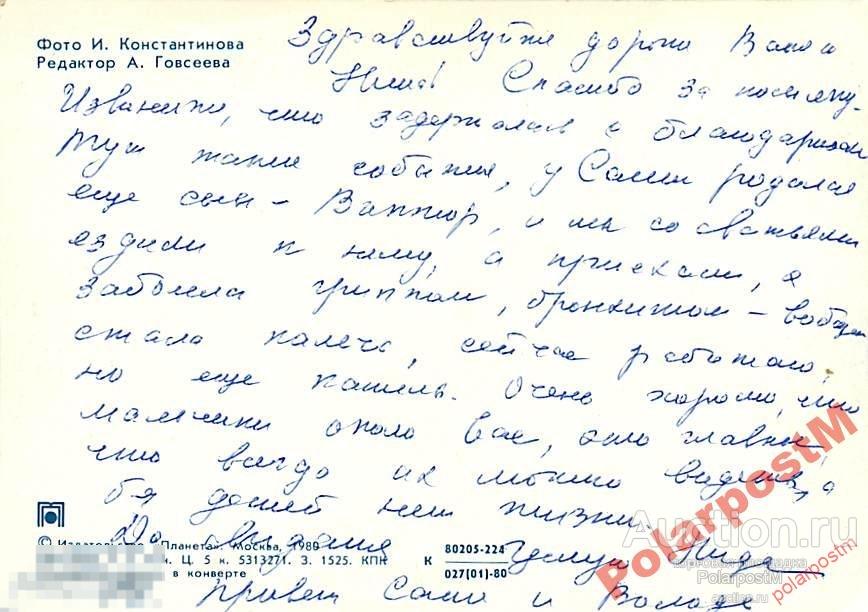 Фото И. Константинова
Редактор А. Говсеева
Здравствуйте дорогие Валя и
Нина! Спасибо за посылку.
Извините, что задержалась с благодарностью
Тут такие события, у Саши родился
еще сын - Виктор, и мы со сватьями
ездили к нему, а приехали, я
заболела гриппом, бронхитом - вообщем
стала калечь, сейчас работаю,
но еще кашель. Очень хорошо, что
мальчики около вас, это главное
что всегда их можно видеть, а
без детей нет жизни.
До свидания
Целую Нида
Привет Саше и Володе
© Издательство „Планета". Москва, 1980
Ц. 5 к. 5313271. З. 1525. КПК
в конверте
К
80205-224
027(01)-80
PolarpostM
Auction.ru
торговая площадка
PolarpostM
auction.ru
polarpostm